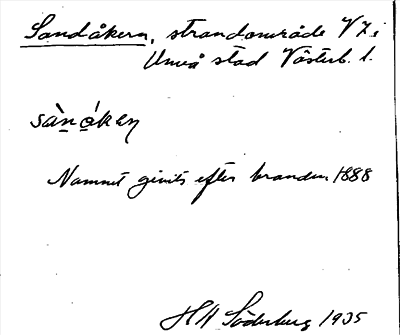 Sandåkern, strandområde V 7 i
Umeå stad Västerb. l.
sàn åken
Namnet givits efter branden 1888
H Söderberg 1935